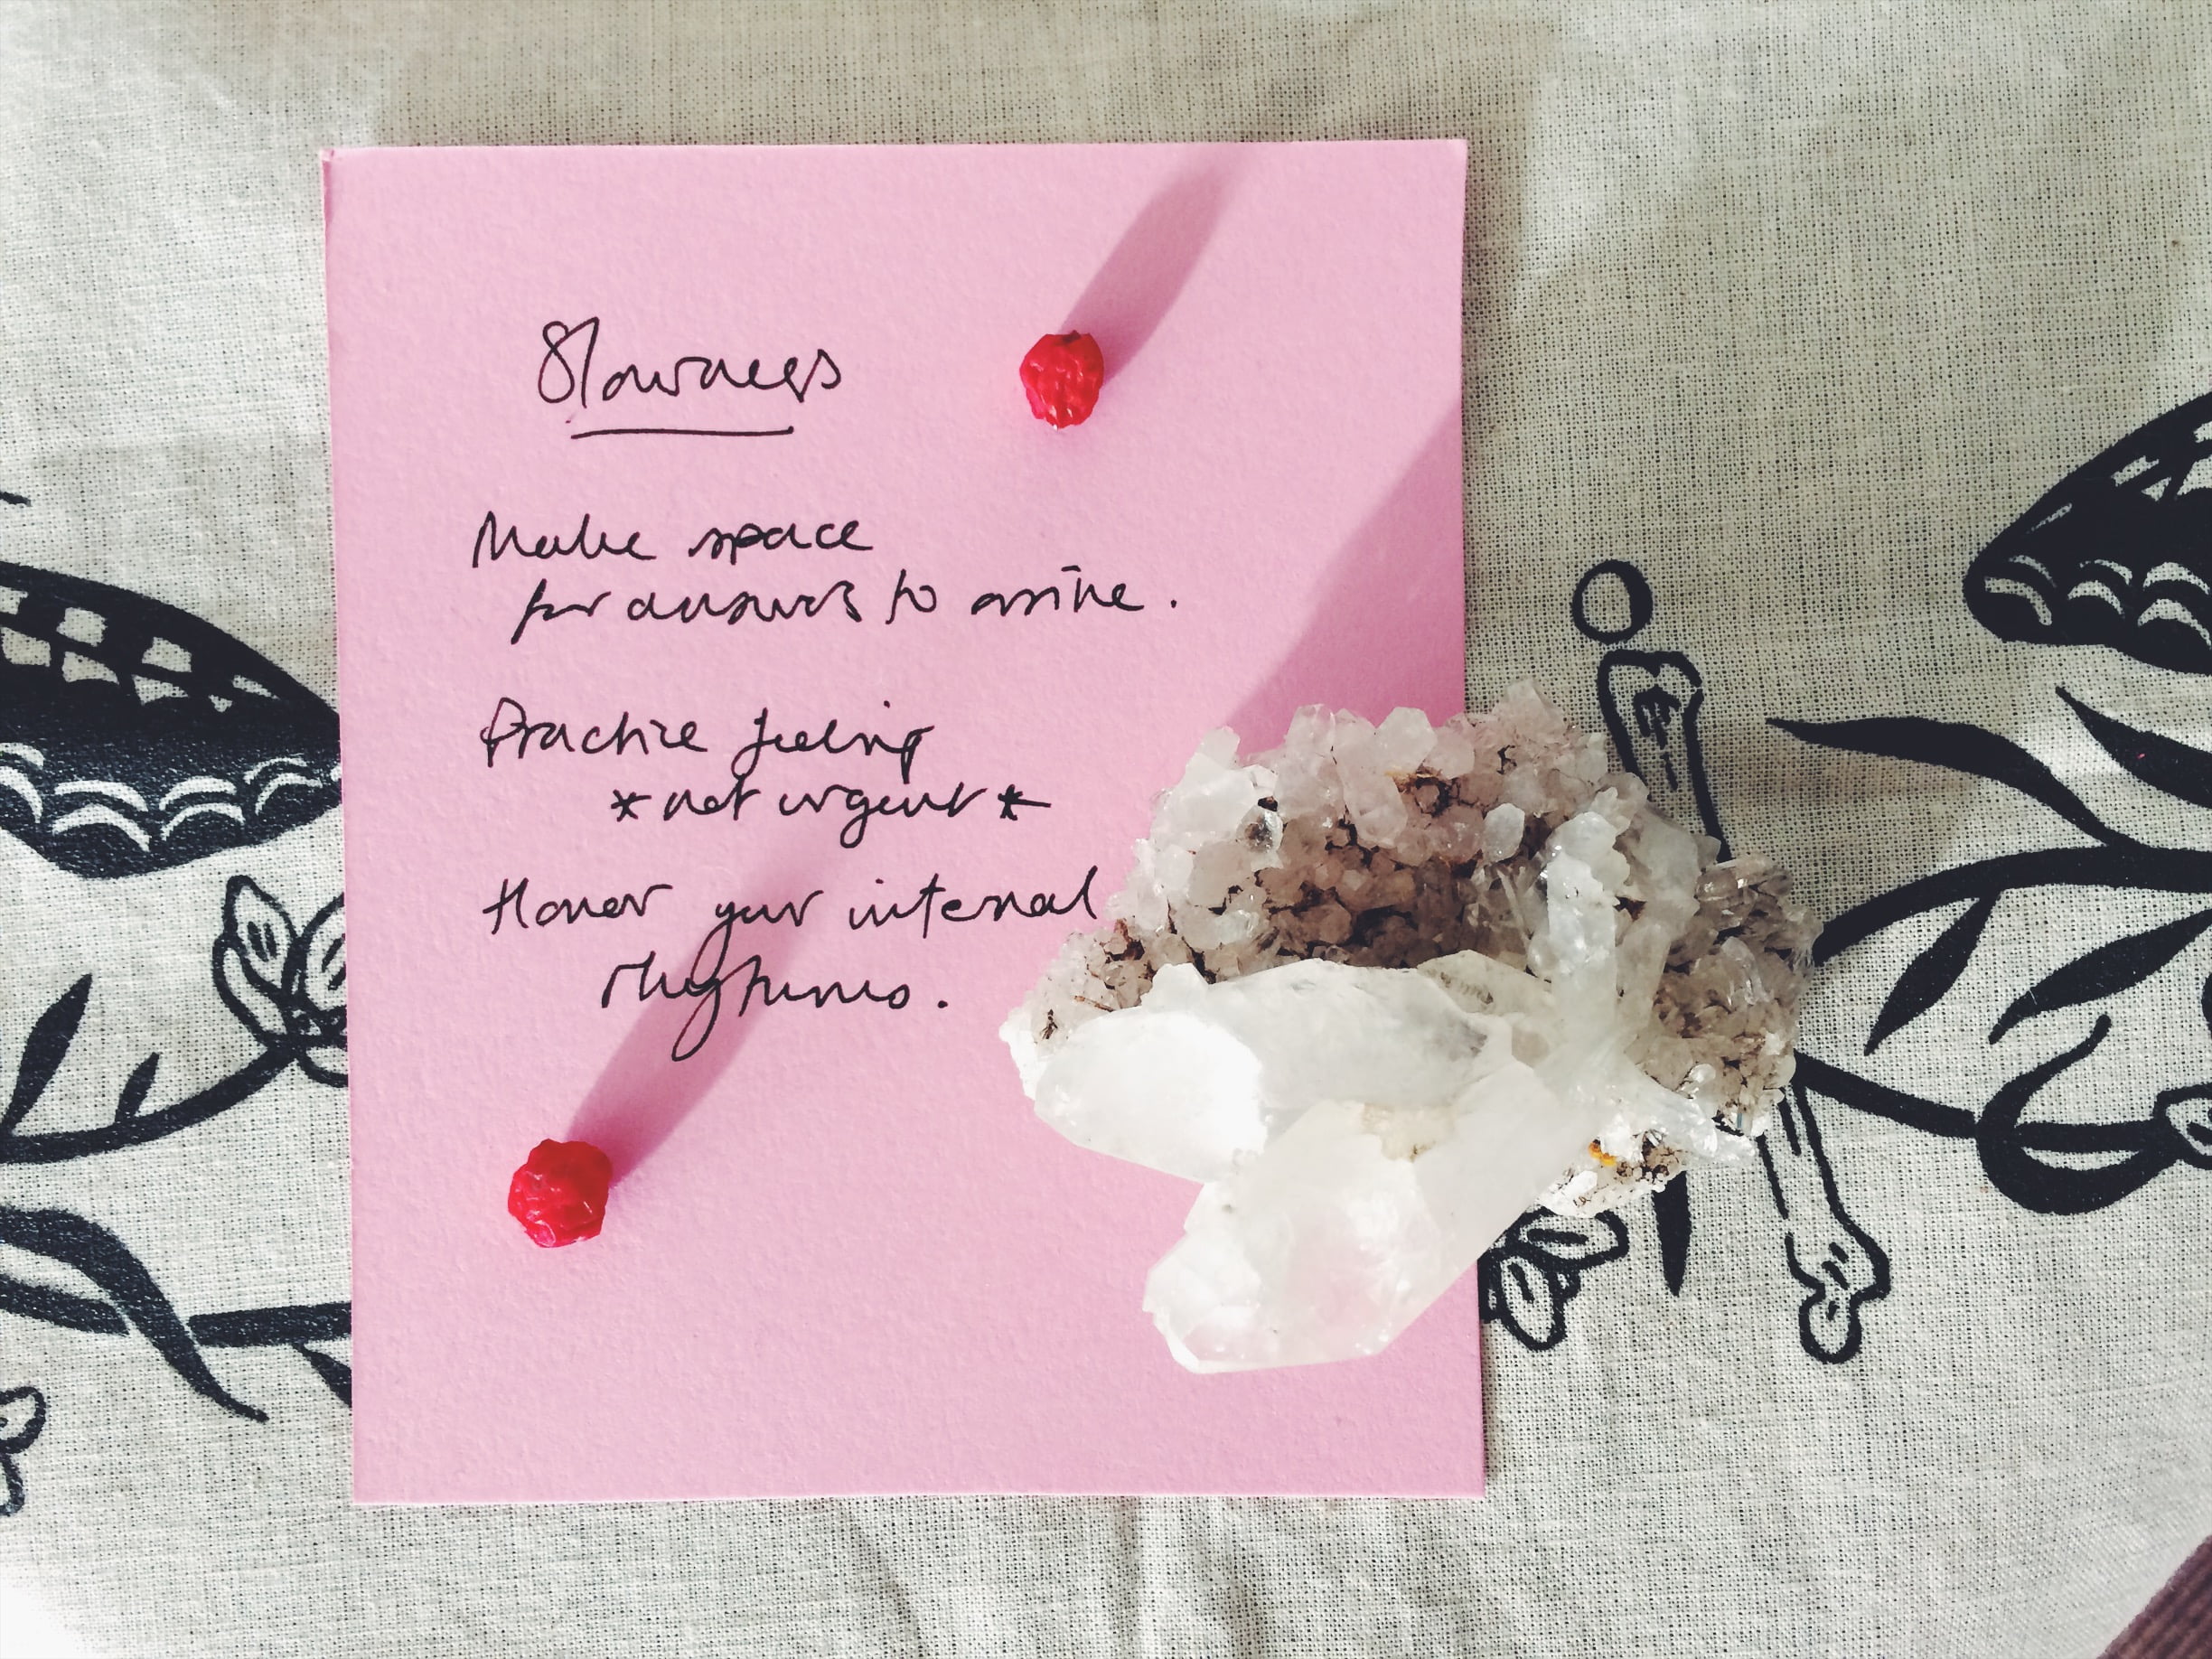 Slowness
Make space
for answers to arrive.
Practice feeling
*not urgent*
Honor your internal
rhythms.